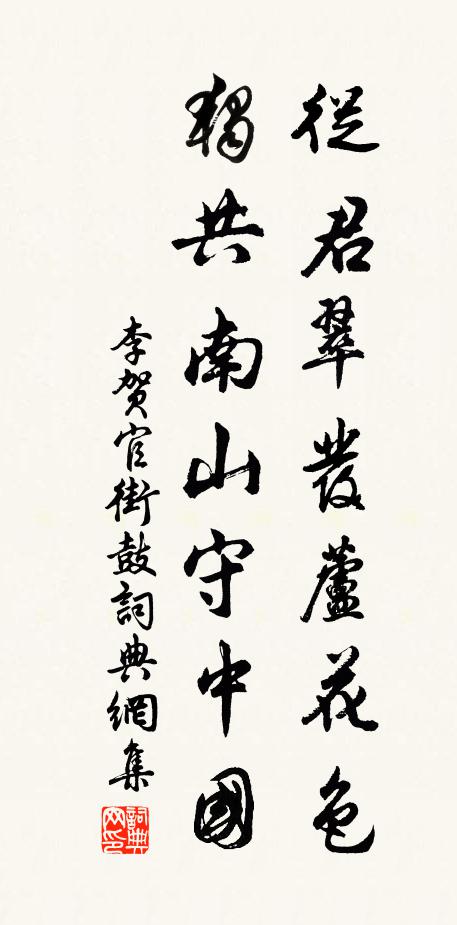 從君翠發蘆花色
獨共南山守中國
李賀官街鼓詞典網集
詞典网印